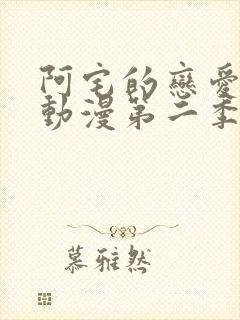 阿宅的戀愛
動漫第二季
慕雅然